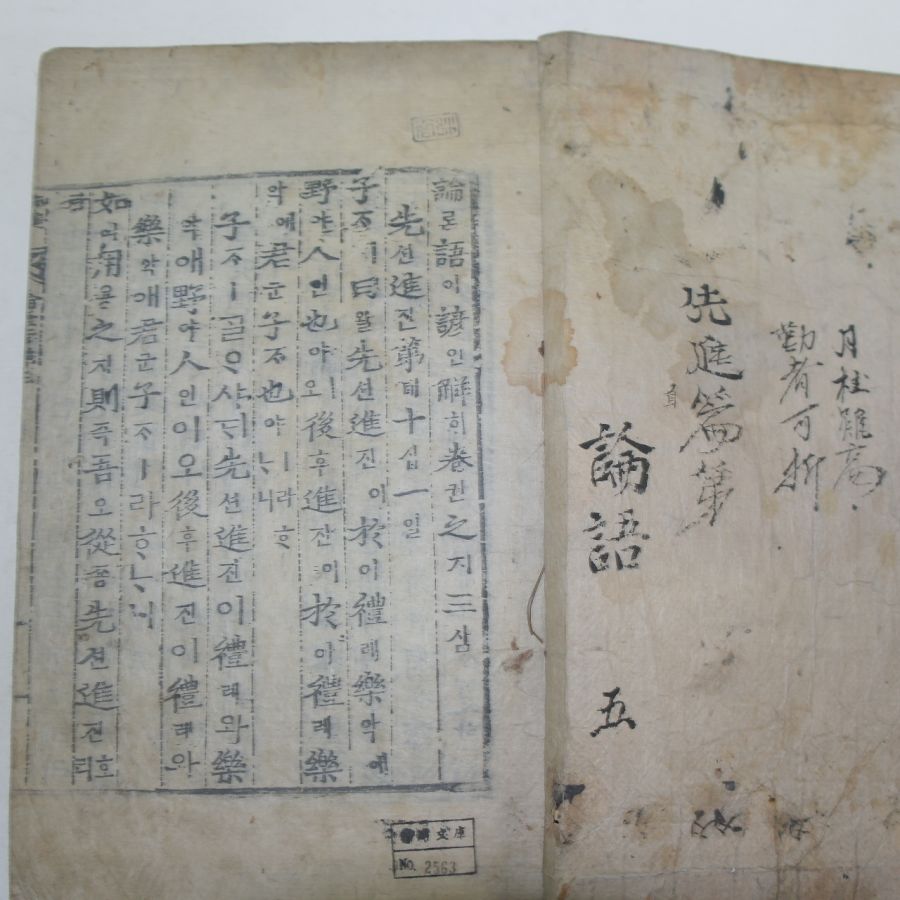 月桂雖高
勤者可折
先進篇第
論語
五
論론語어諺언解ᄒᆡ卷권之지三삼
先션進진第뎨十십一일
子ᄌᆞㅣ曰왈先션進진이於어禮례樂악애
野야人인也야오後후進진이於어禮례樂
악애君군子ᄌᆞ也야ㅣ라ᄒᆞᄂᆞ니
子ᄌᆞㅣᄀᆞᆯᄋᆞ샤ᄃᆡ先션進진이禮례와樂
악애野야人인이오後후進진이禮례와
樂악애君군子ᄌᆞㅣ라ᄒᆞᄂᆞ니
如여用용之지則즉吾오從죵先션進진호
文庫
No. 2563